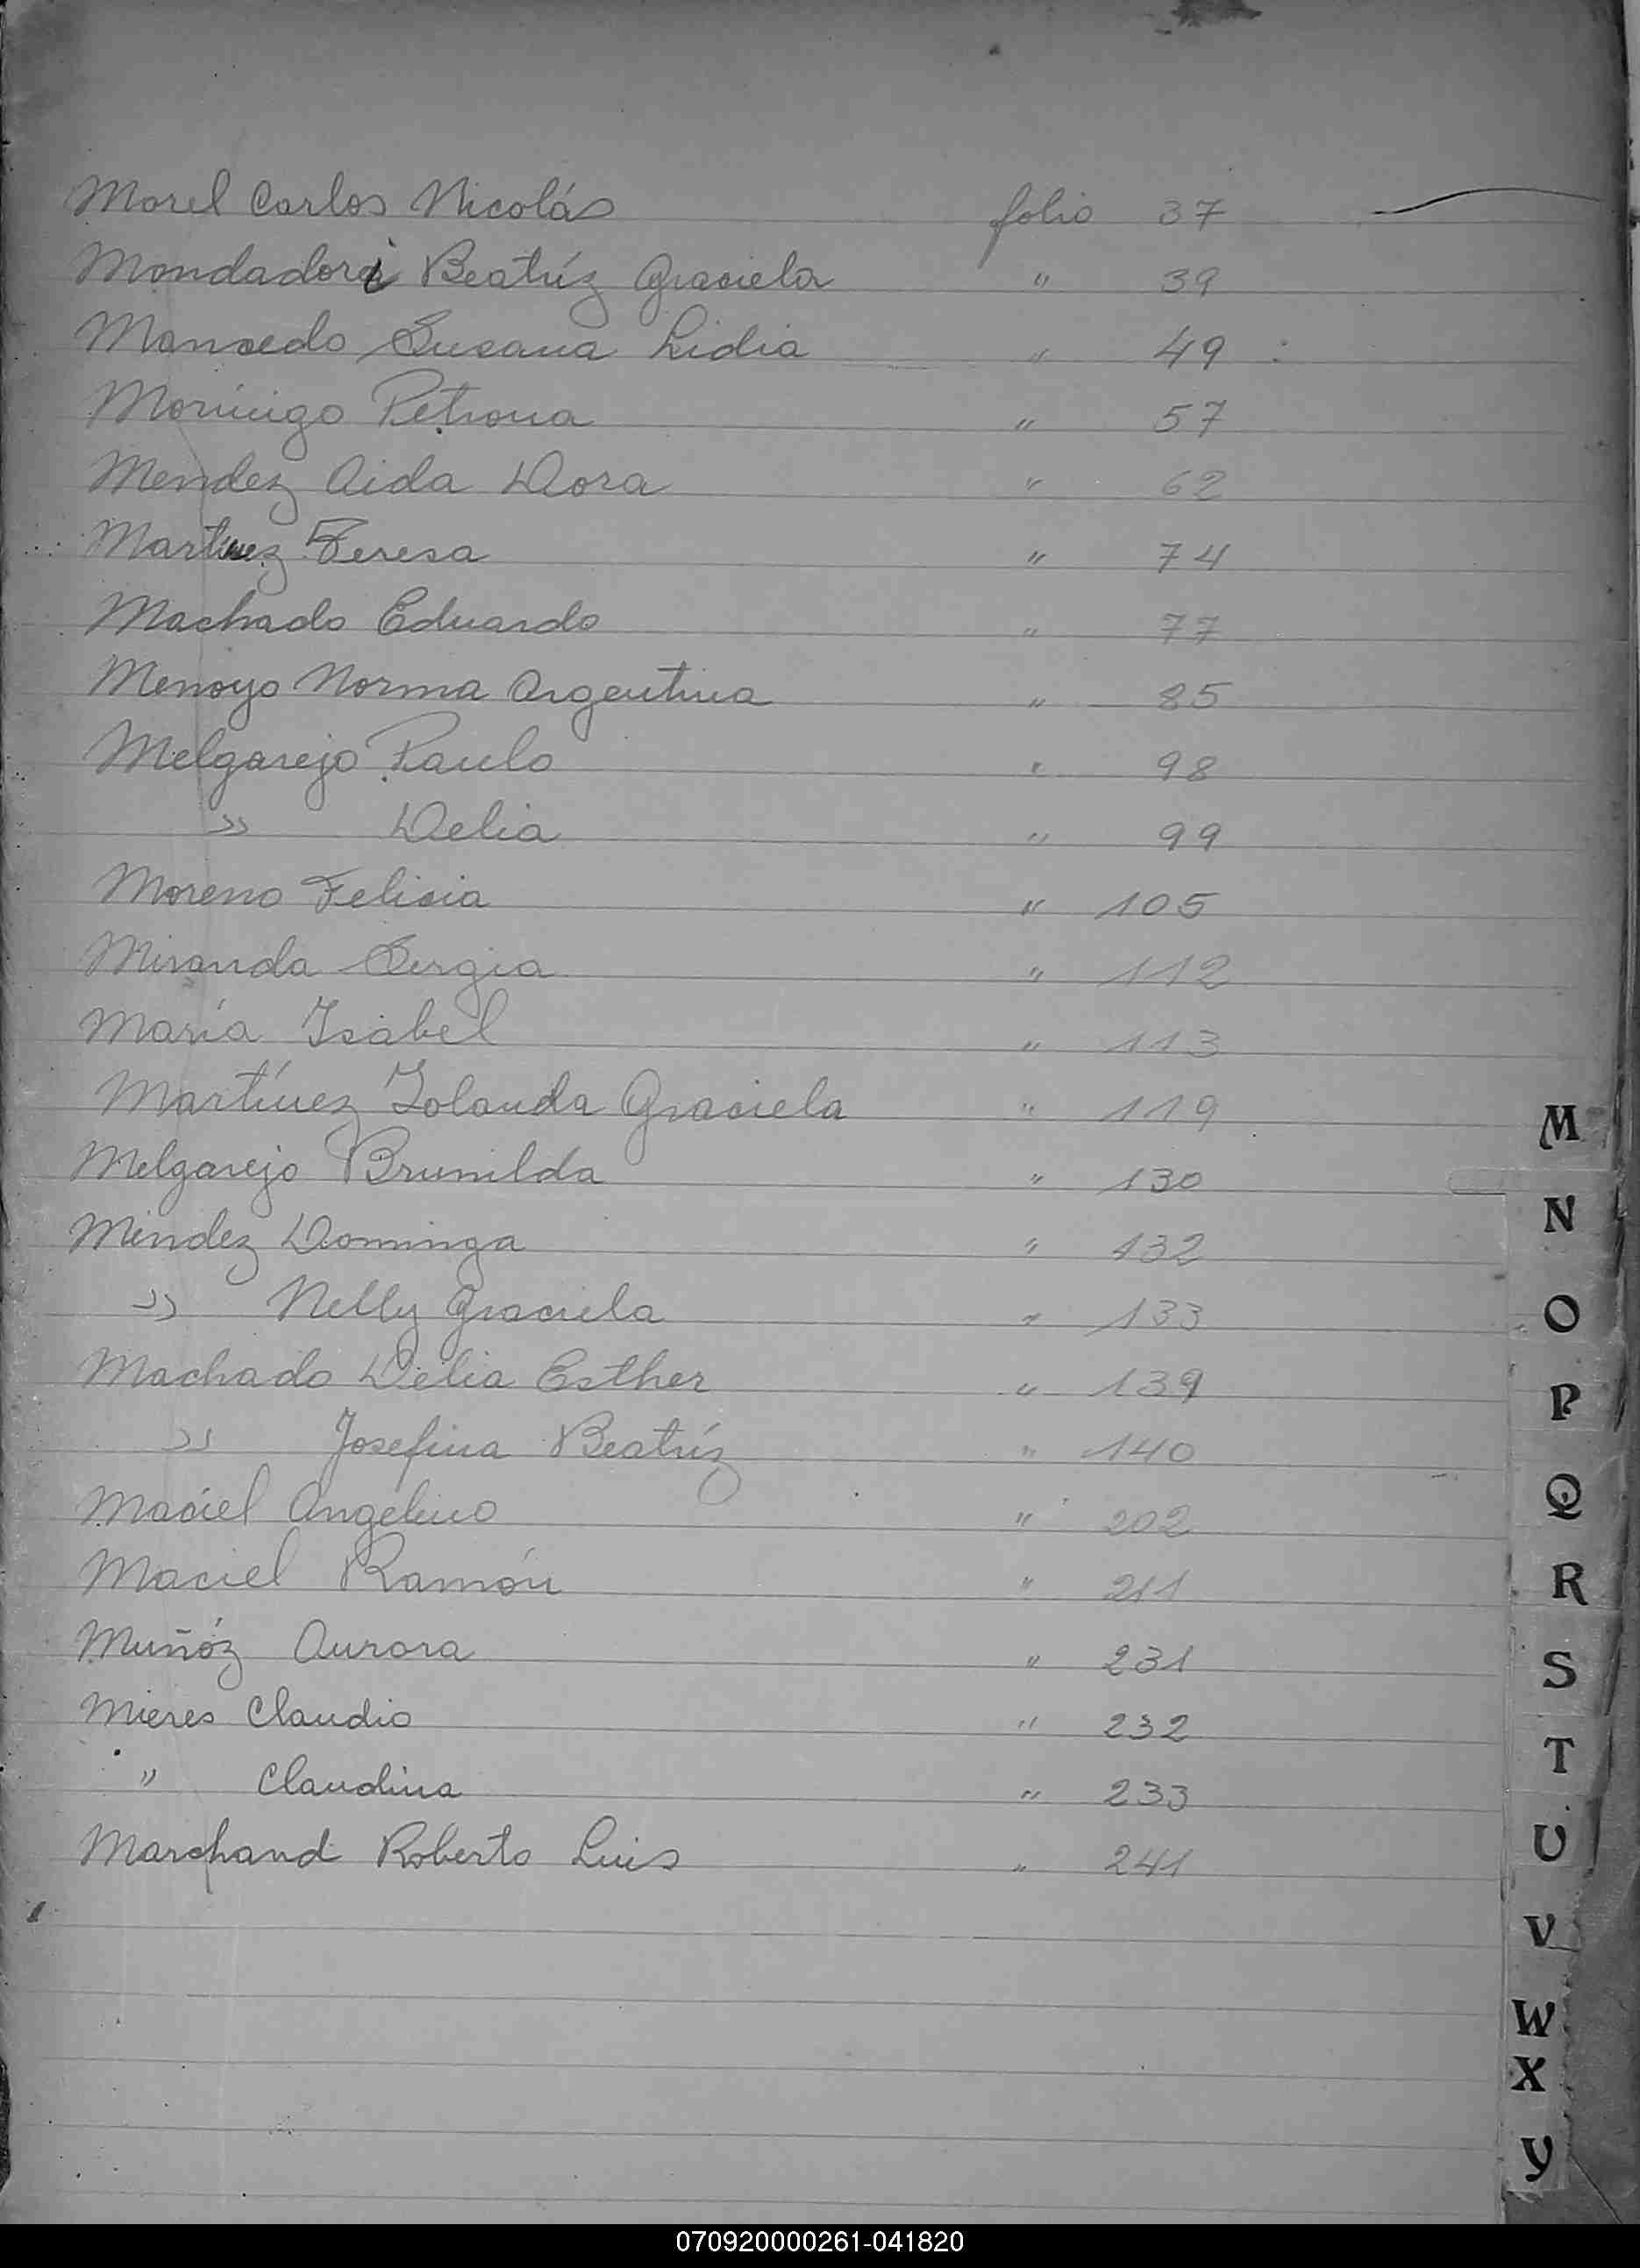 Morel Carlos Nicolás folio 37
Mondadori Beatríz Graciela " 39
Mansedo Susana Lidia " 49
Morínigo Petrona " 57
Mendez Aida Dora " 62
Martinez Teresa " 74
Machado Eduardo " 77
Menoyo Norma Argentina " 85
Melgarejo Paulo " 98
" Delia " 99
Moreno Felicia " 105
Miranda Sergia " 112
María Isabel " 113
Martínez Iolanda Graciela " 119
Melgarejo Brunilda " 130
Méndez Dominga " 132
" Nelly Graciela " 133
Machado Delia Esther " 139
" Josefina Beatríz " 140
Maciel Angélino " 202
Maciel Ramón " 211
Muñóz Aurora " 231
Mieres Claudio " 232
" Claudina " 233
Marchand Roberto Luis " 241
M
N
O
P
Q
R
S
T
U
V
W
X
Y
070920000261-041820